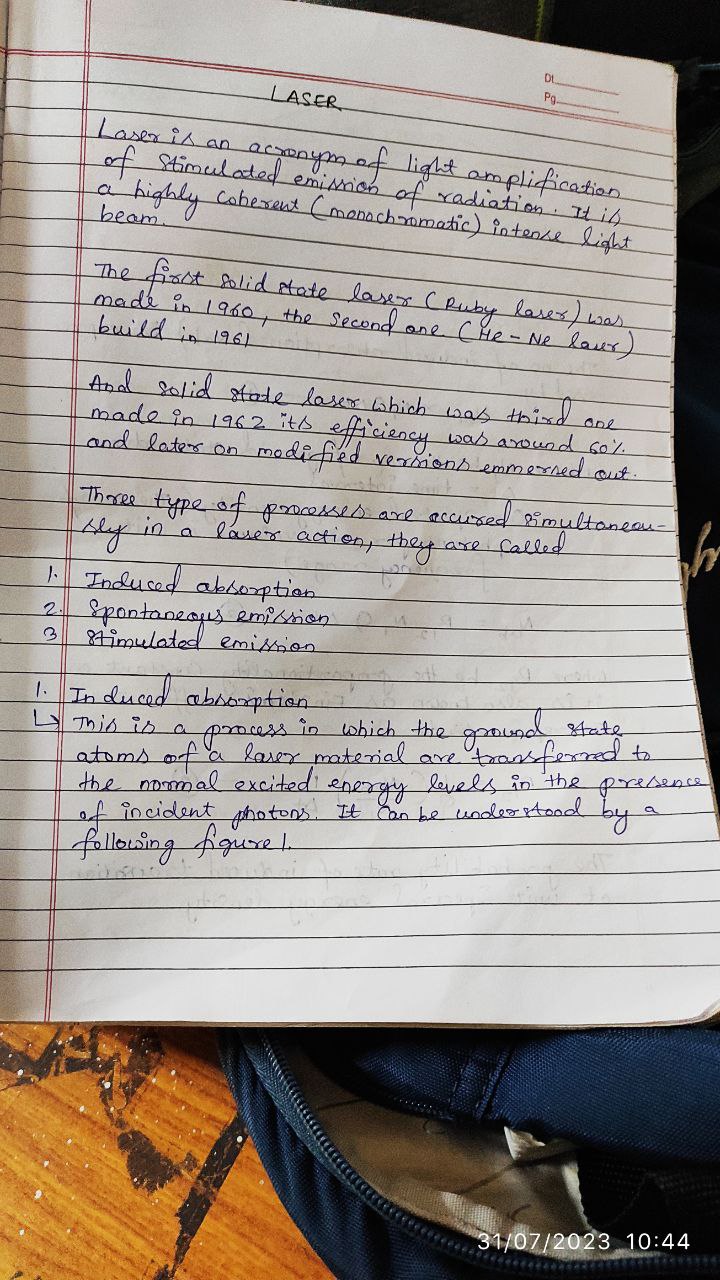 Dt.
Pg.
LASER
Laser is an acronym of light amplification
of stimulated emission of radiation. It is
a highly coherent (monochromatic) intense light
beam.
The first solid state laser (Ruby laser) was
made in 1960, the second one (He-Ne laser)
build in 1961
And solid state laser which was third one
made in 1962 its efficiency was around 60%
and later on modified versions emmersed out.
Three type of processes are accured simultaneou-
sly in a laser action, they are called
1. Induced absorption
2. Spontaneous emission
3 Stimulated emission
1. Induced absorption
↳ This is a process in which the ground state
atoms of a laser material are transferred to
the normal excited energy levels in the presence
of incident photons. It can be understood by a
following figure 1.
31/07/2023 10:44